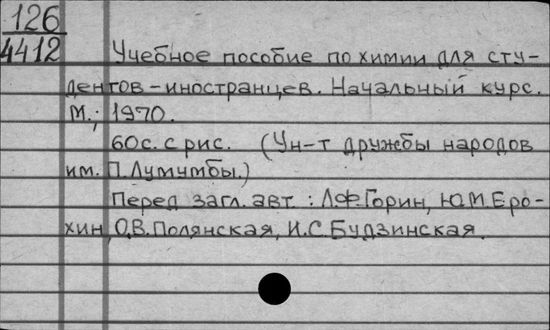 126
4412 Учебное пособие по химии для сту-
дентов-иностранцев. Начальный курс.
М.; 1970.
60с. с рис. (Ун-т дружбы народов
им. П. Лумумбы.)
Перед загл. авт.: Л.Ф. Горин, Ю.М. Еро-
хин, О.В. Полянская, И.С. Будзинская.